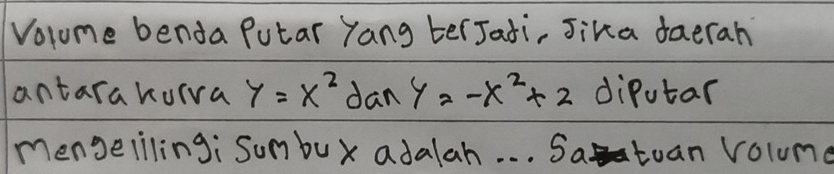 Volume benda Putar Yang terJadi, Jika daerah
antara kurva Y = X² dan Y = -X² + 2 diputar
mengelilingi Sumbu X adalah ... Satuan Volume